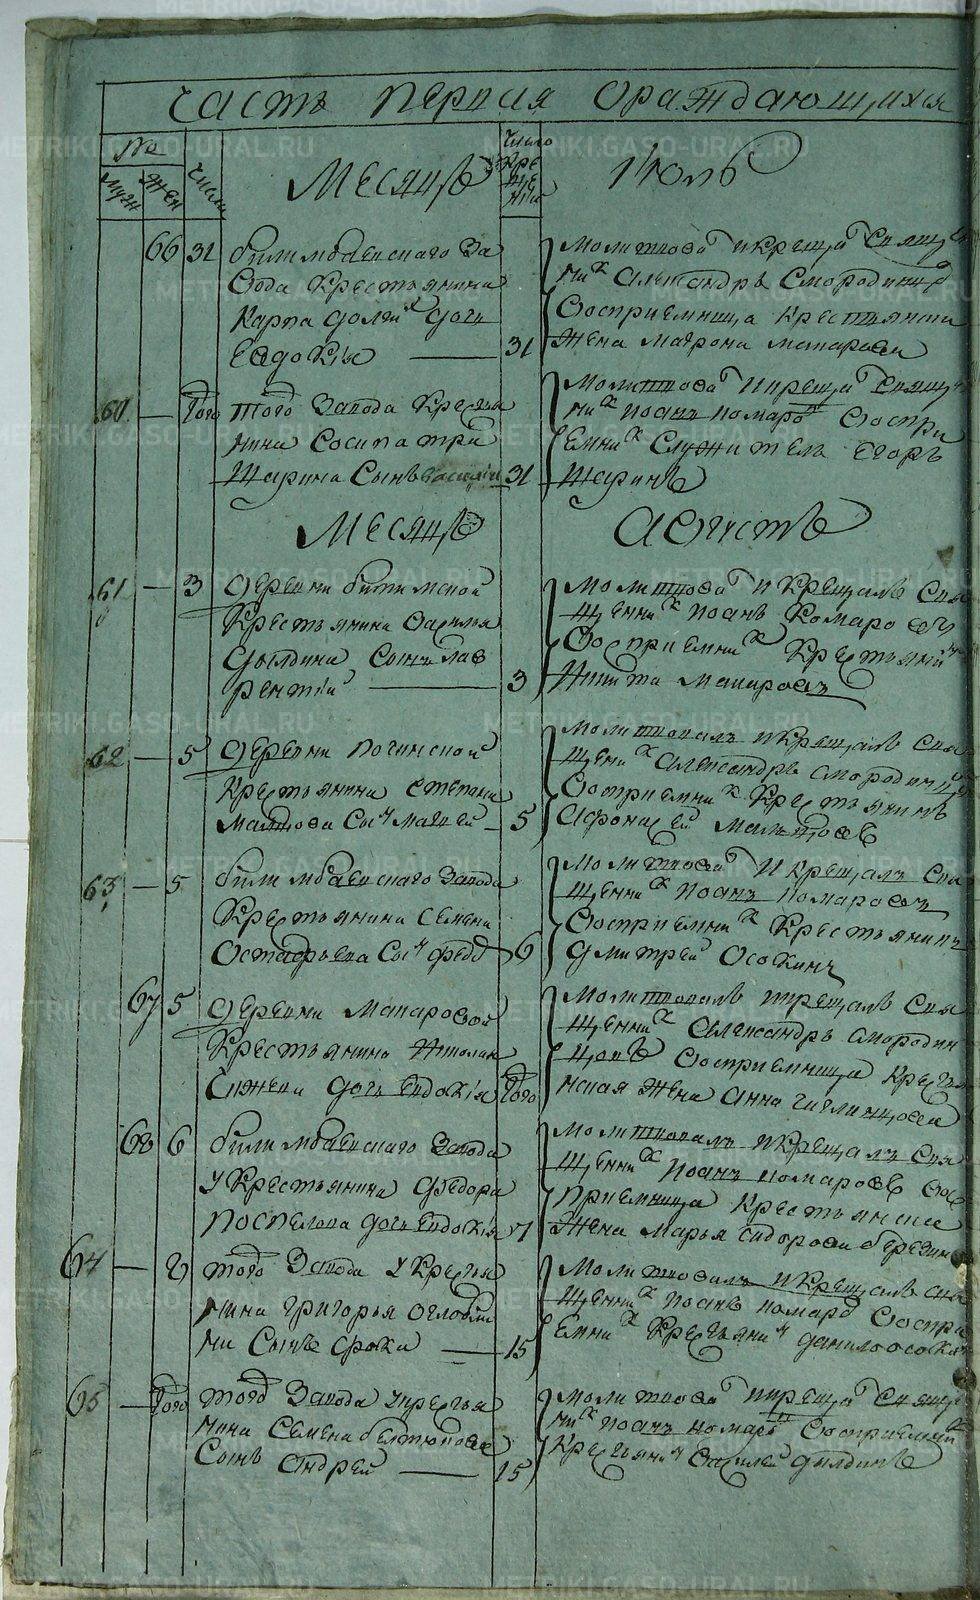 часть первая ораждающихся
№
муж жен
число
месяцъ
число кре ще нiя
июль
66 31 билимбаевскаго за
вода крестьянина
карпа долги дочь
евдокiя 31
молитвова и креща священ
ник александръ смородинцо
восприемница крестьянска
жена матрона макарова
60 — того того завода крестья
нина сосипатра
шарина сынъ василiи 31
молитвова и креща священ
ник иоанъ комаро воспри
емник служитель егоръ
шаринъ
месяцъ
августъ
61 — 3 деревни битимской
крестьянина василя
дылдина сынъ лав
рентiи 3
молитвова и крещалъ свя
щенник иоанъ комаровъ
восприемник крестьянин
никита макаровъ
62 — 5 деревни починской
крестьянина степана
сын матвей 5
молитвовалъ и крещалъ свя
щенник александръ смородинц
восприемник крестьянинъ
афонасей
63 — 5 билимбаевскаго завода
крестьянина семена
остафьева сын федо 6
молитвова и крещалъ свя
щенник иоанъ комаровъ
восприемник крестьянинъ
дмитрей осокинъ
67 5 деревни макаровой
крестьянина николая
дочь евдокiя того
молитвовалъ и крещалъ свя
щенник александръ смородин
цовъ восприемница крестья
нская жена анна
68 6 билимбаевскаго завода
у крестьянина федора
поспелова дочь евдокiя 7
молитвовалъ и крещалъ свя
щенник иоанъ комаровъ вос
приемница крестьянска
жена марья сидорова
64 — 8 того завода у крестья
нина григорья оглобли
на сынъ фока 15
молитвовалъ и крещалъ свя
щенник иоанъ комаро воспри
емник крестьянин данило осокин
65 — того того завода у крестья
нина семена белтюкова
сынъ андрей 15
молитвова и креща священ
ник иоанъ комаро восприемник
крестьянин василей дылдинъ
METRIKI.GASO-URAL.RU